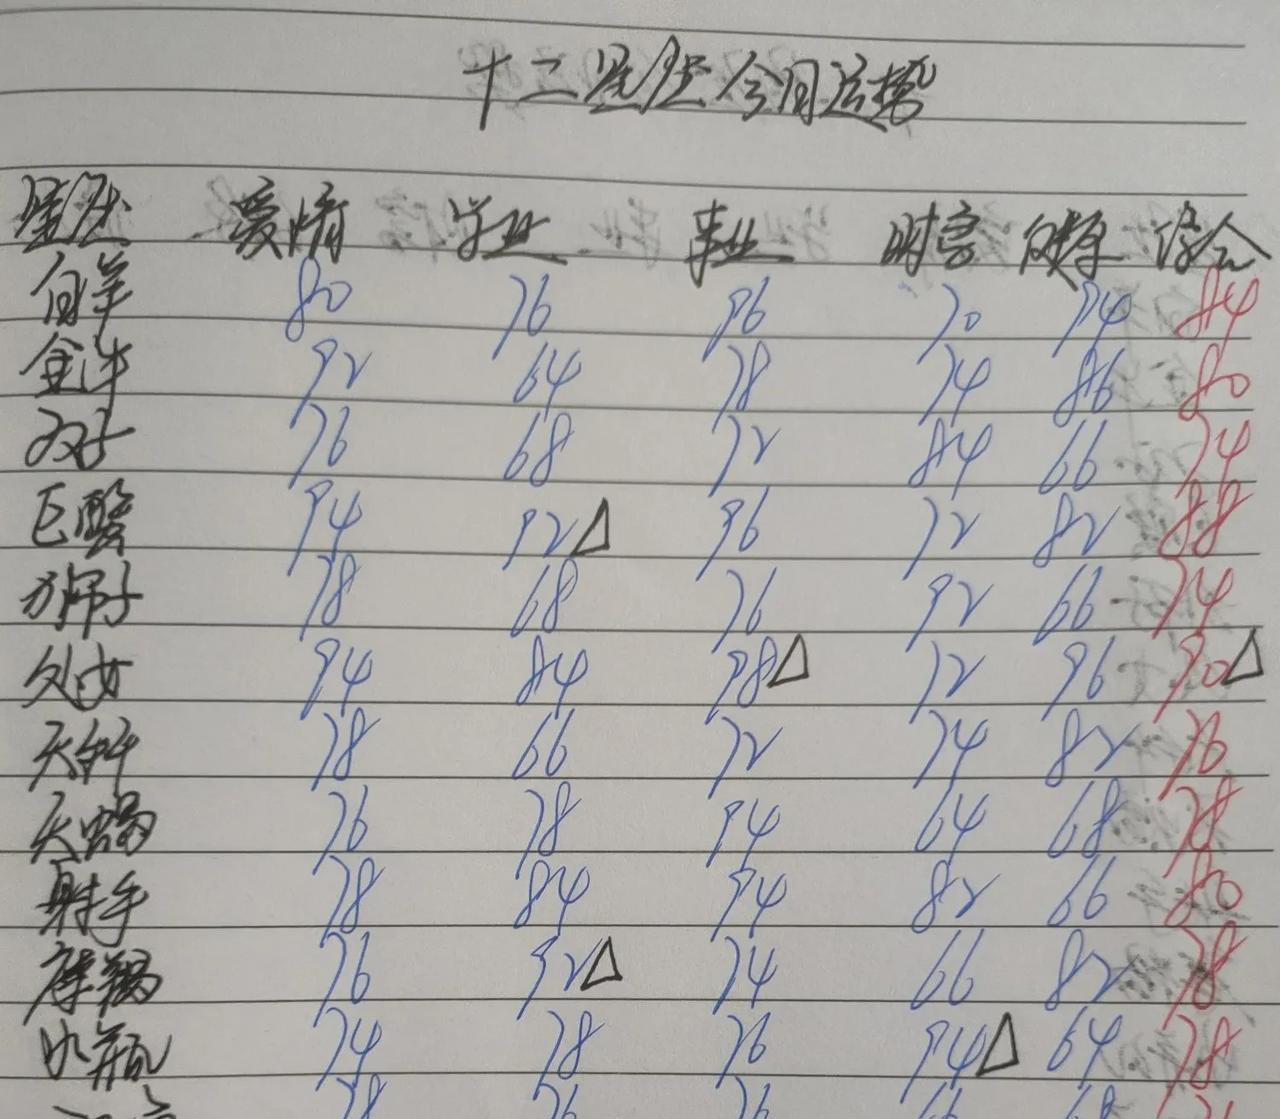 十二星座今日运势
星座 爱情 学业 事业 财富 健康 综合
白羊 80 76 96 70 94 84
金牛 92 64 78 74 86 80
双子 76 68 72 84 66 74
巨蟹 94 92△ 96 72 82 88
狮子 78 68 76 92 66 74
处女 94 84 98△ 72 96 90△
天秤 78 66 72 74 82 76
天蝎 76 78 94 64 68 78
射手 78 84 94 82 66 80
摩羯 76 92△ 74 66 82 78
水瓶 74 78 76 94△ 64 78
78 76 76 66 68